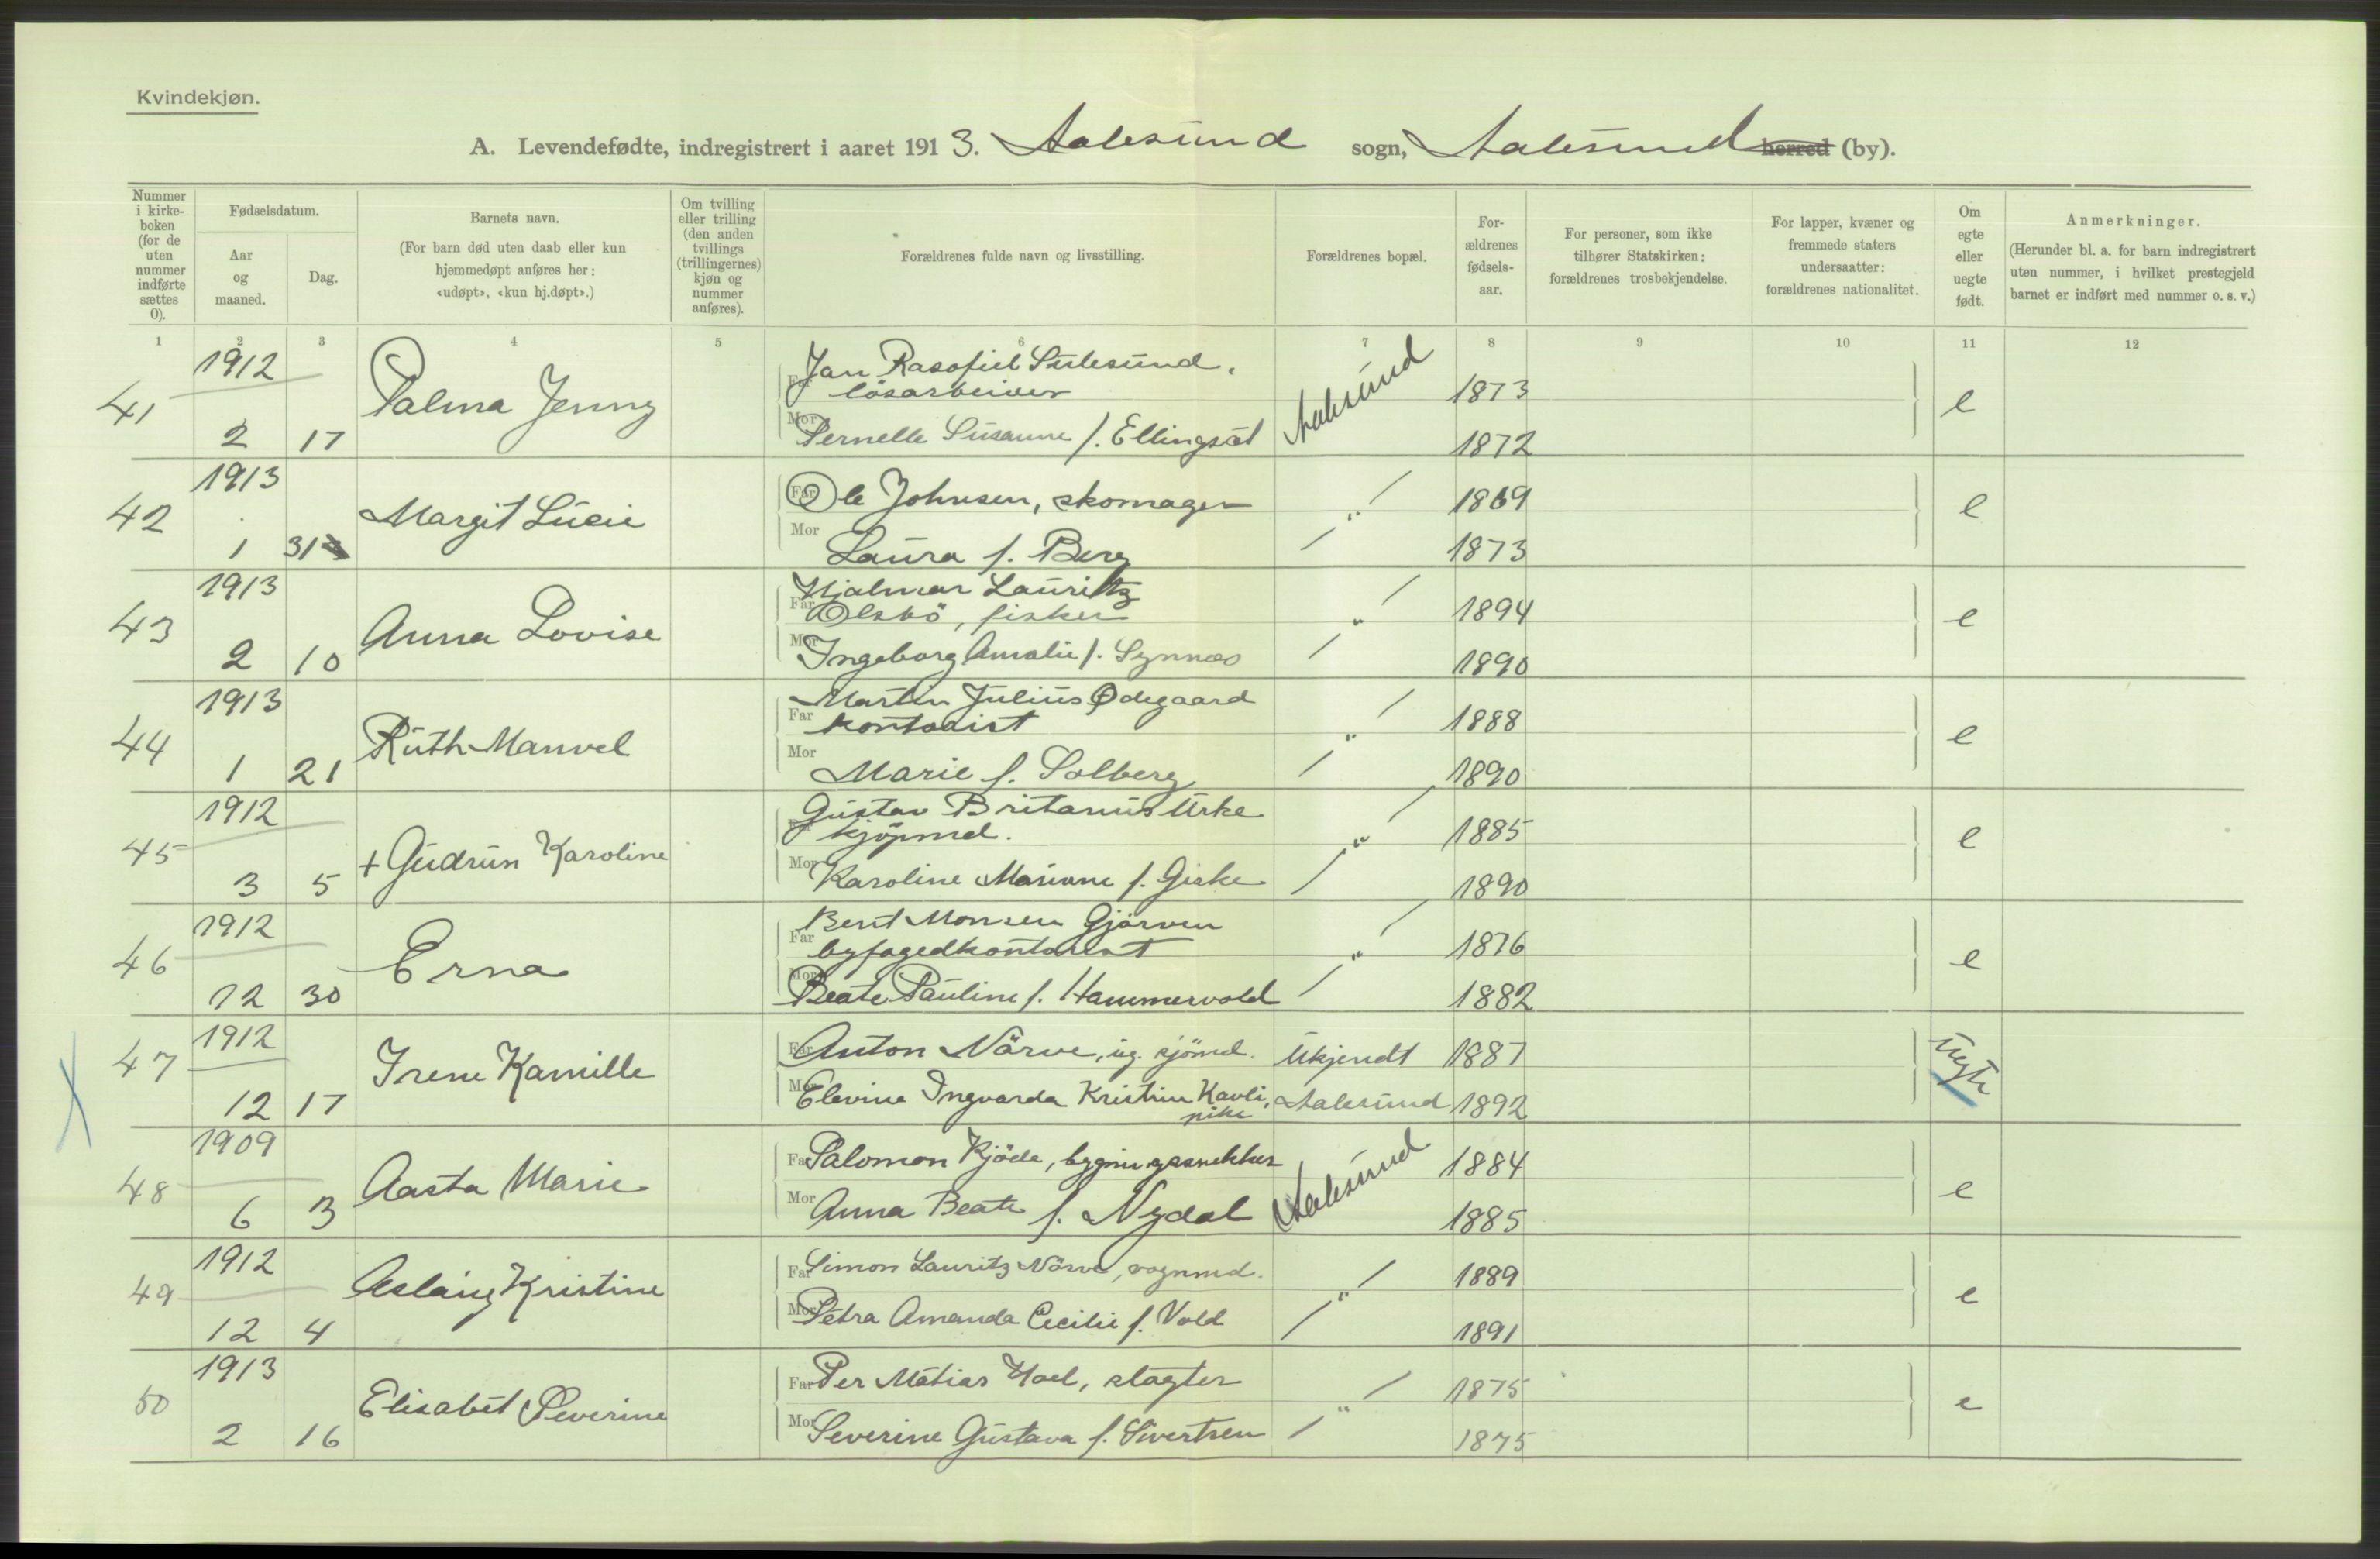 Kvindekjøn.
A. Levendefødte, indregistrert i aaret 1913. Aalesund sogn, Aalesund herred (by).
Nummer i kirke-boken (for de uten nummer indførte sættes 0).
Fødselsdatum.
Aar og maaned.
Dag.
Barnets navn.
(For barn død uten daab eller kun hjemmedøpt anføres her: «udøpt», «kun hj.døpt».)
Om tvilling eller trilling (den anden tvillings (trillingernes) kjøn og nummer anføres).
Forældrenes fulde navn og livsstilling.
Forældrenes bopæl.
For-ældrenes fødsels-aar.
For personer, som ikke tilhører Statskirken: forældrenes trosbekjendelse.
For lapper, kvæner og fremmede staters undersaatter: forældrenes nationalitet.
Om egte eller uegte født.
Anmerkninger.
(Herunder bl. a. for barn indregistrert uten nummer, i hvilket prestegjeld barnet er indført med nummer o. s. v.)
1 2 3 4 5 6 7 8 9 10 11 12
41 1912 2 17 Palma Jenny
Far Jan Sulesund, løsarbeider Aalesund 1873 e
Mor Pernelle Susanne f. Ellingsæt 1872
42 1913 1 31 Margit Lucie
Far Ole Johnsen, skomager " 1869 e
Mor Laura f. Berg 1873
43 1913 2 10 Anna Lovise
Far Hjalmar Lauritz Olsbö, fisker " 1894 e
Mor Ingeborg Amalie f. Synnæs 1890
44 1913 1 21 Ruth Manvel
Far Martin Julius Ødegaard kontorist " 1888 e
Mor Marie f. Solberg 1890
45 1912 3 5 + Gudrun Karoline
Far Gustav Britanus Urke kjöpmd. " 1885 e
Mor Karoline Mariane f. Giske 1890
46 1912 12 30 Erna
Far Berit Monsen Gjörven byfogedkontorist " 1876 e
Mor Beate Pauline f. Hammervold 1882
47 1912 12 17 Irene Kamille
Far Anton Nörve, ug. sjömd. Ukjendt 1887 uegte
Mor Elevine Ingvarda Kristine Kavli, pike Aalesund 1892
48 1909 6 3 Aasta Marie
Far Salomon Kjöde, bygningssnekker Aalesund 1884 e
Mor Anna Beate f. Nydal 1885
49 1912 12 4 Aslaug Kristine
Far Simon Lauritz Nörve, vognmd. " 1889 e
Mor Petra Amanda Cecilie f. Vold 1891
50 1913 2 16 Elisabet Severine
Far Per Matias Hoel, slagter " 1875 e
Mor Severine Gustava f. Sivertsen 1875